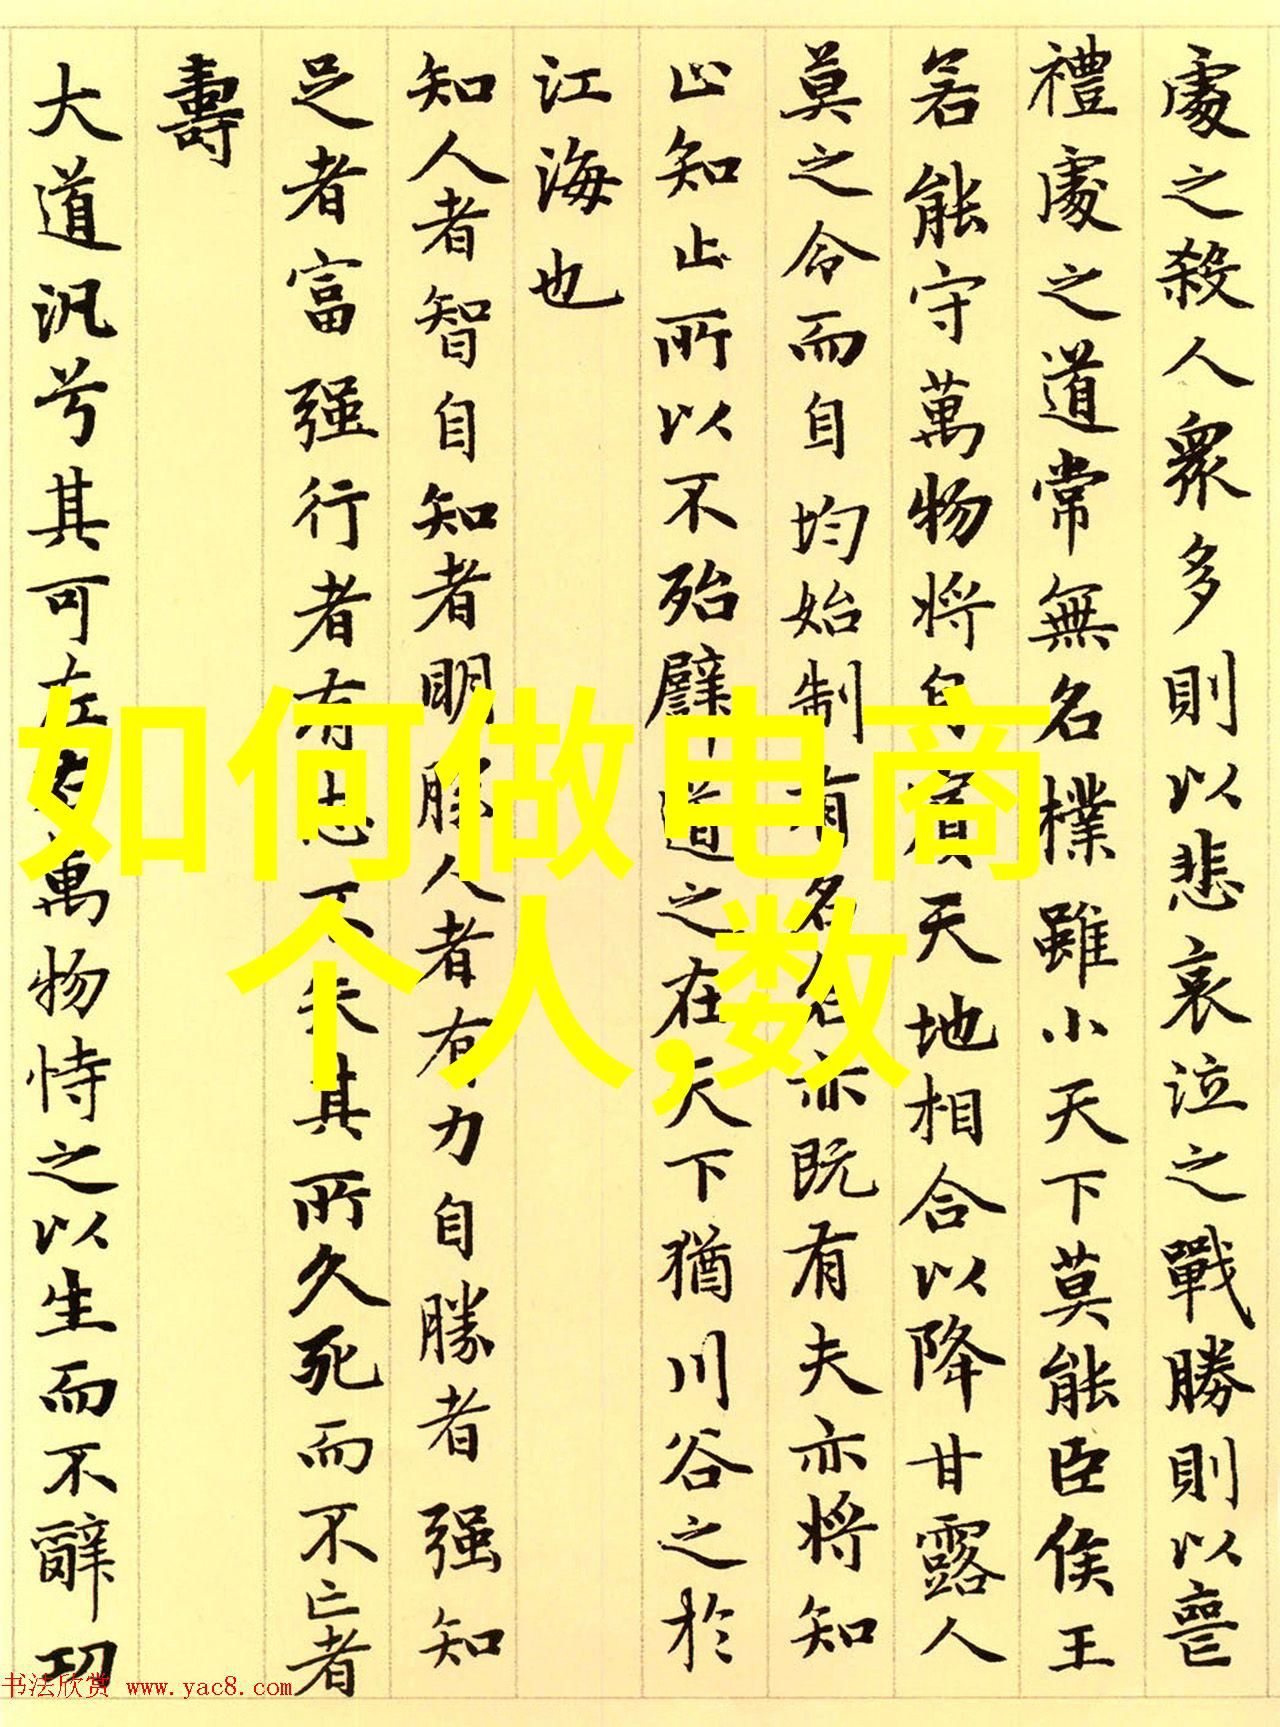 處之殺人眾多則以悲哀泣之戰勝則以喪
禮處之道常無名樸雖小天下莫能臣侯王
若能守萬物將自賓天地相合以降甘露人
莫之令而自均始制有名名亦既有夫亦將知
止知止所以不殆譬道之在天下猶川谷之於
江海也
知人者智自知者明勝人者有力自勝者强知
足者富强行者有志不失其所久死而不亡者
壽
大道汎兮其可左右萬物恃之以生而不辭功
如何做电商
个人,数
书法欣赏 www.yac8.com